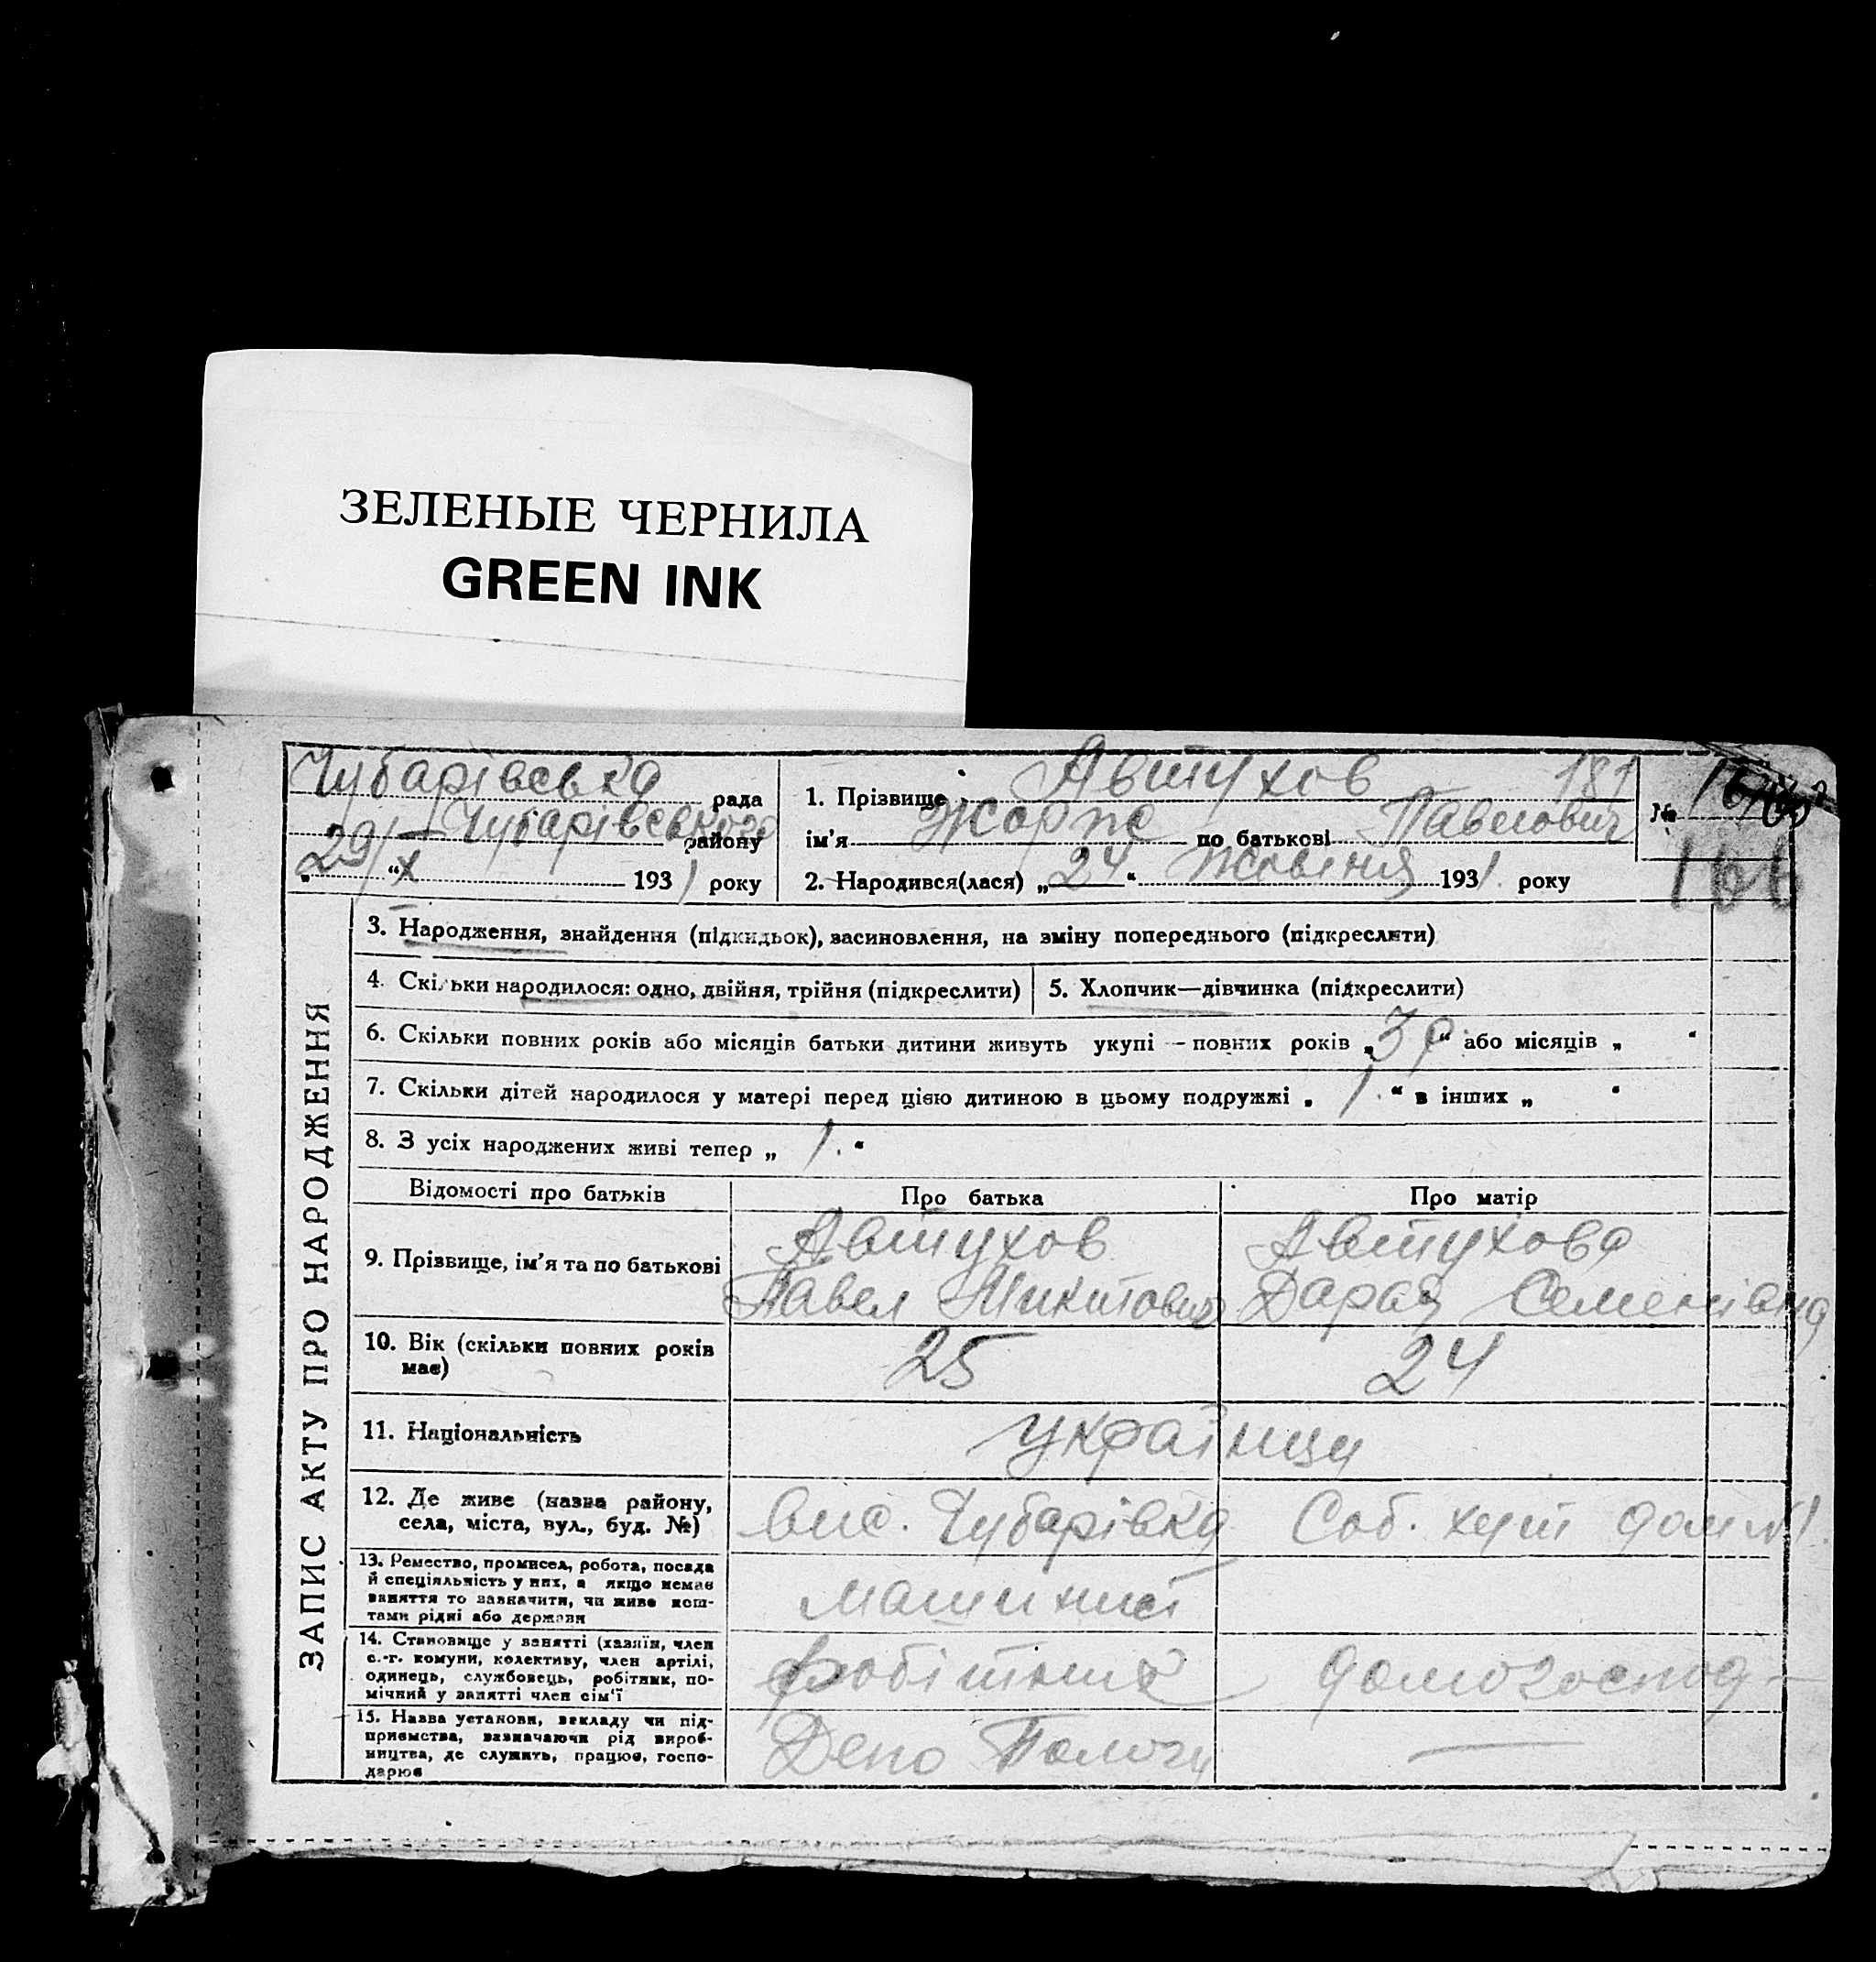 ЗЕЛЕНЫЕ ЧЕРНИЛА
GREEN INK
Чубарівська рада
Чубарівського району
„29“ X 1931 року
1. Прізвище Автухов 181
ім'я Жорж по батькові Павлович
2. Народився(лася) „24“ жовтня 1931 року
№
166
ЗАПИС АКТУ ПРО НАРОДЖЕННЯ
3. Народження, знайдення (підкидьок), засиновлення, на зміну попереднього (підкреслити)
4. Скільки народилося: одно, двійня, трійня (підкреслити)
5. Хлопчик—дівчинка (підкреслити)
6. Скільки повних років або місяців батьки дитини живуть укупі — повних років „3 р.“ або місяців „ “
7. Скільки дітей народилося у матері перед цією дитиною в цьому подружжі „1.“ в інших „ “
8. З усіх народжених живі тепер „1.“
Відомості про батьків Про батька Про матір
9. Прізвище, ім'я та по батькові
Автухов
Павел Микитович
Автухова
Дарая Семенівна
10. Вік (скільки повних років має)
25 24
11. Національність
українци
12. Де живе (назва району,
села, міста, вул., буд. №)
вис. Чубарівка Соб. хут дом №1.
13. Ремество, промисел, робота, посада
й спеціяльність у них, а якщо немає
заняття то зазначити, чи живе кош-
тами рідні або держави
машиніст
14. Становище у занятті (хазяїн, член
с.-г. комуни, колективу, член артілі,
одинець, службовець, робітник, по-
мічний у занятті член сім'ї
робітник домогоспод-
15. Назва установи, закладу чи під-
приємства, зазначаючи рід вироб-
ництва, де служить, працює, госпо-
дарює
Депо Пологи —